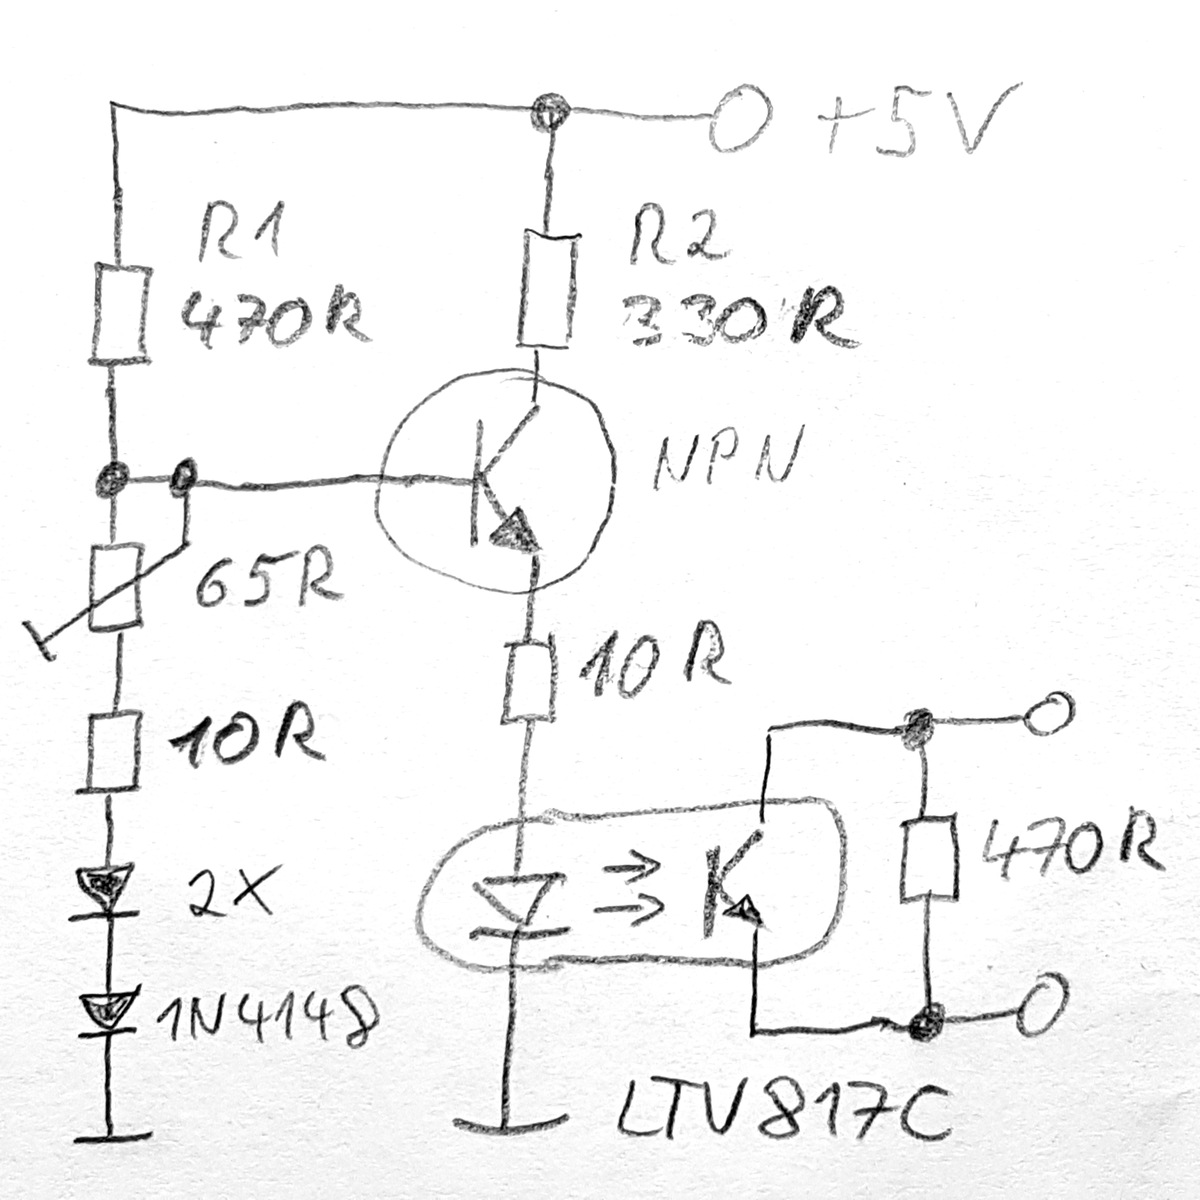 +5V
R1
470R
R2
330R
NPN
65R
10R
10R
470R
2X
1N4148
LTV817C